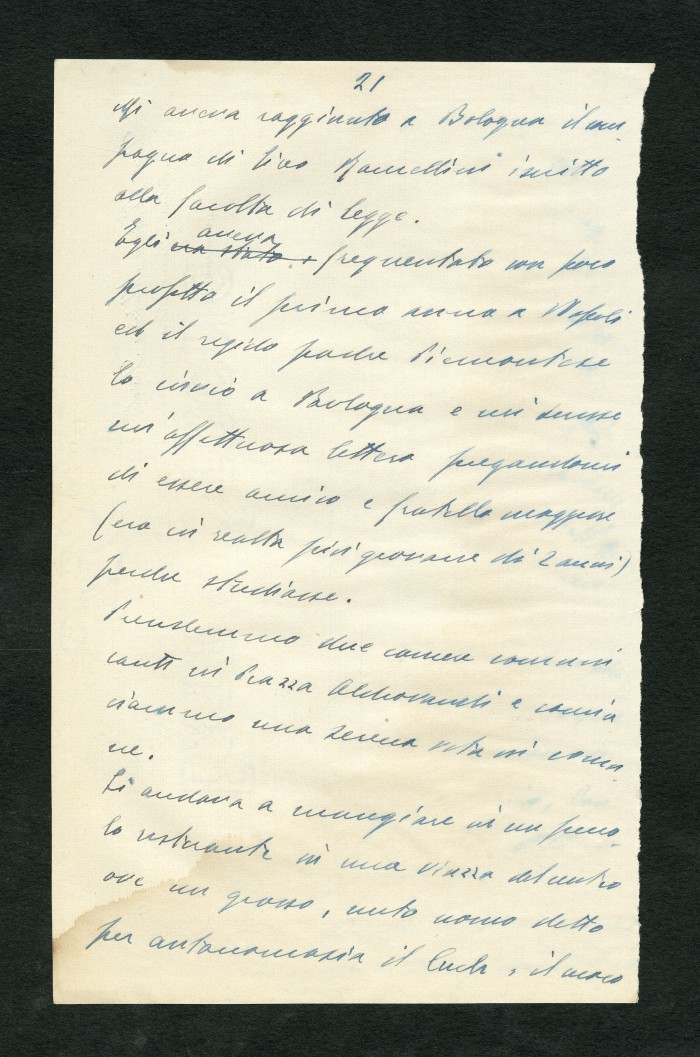 21
Mi aveva raggiunto a Bologna il com-
pagno di liceo Ramellini iscritto
alla facoltà di legge.
aveva
Egli era stato frequentato con poco
profitto il primo anno a Napoli
ed il rigido padre Piemontese
lo inviò a Bologna e mi scrisse
un'affettuosa lettera pregandomi
di essere amico e fratello maggiore
(ero in realtà più giovane di 2 anni)
perché studiasse.
Prendemmo due camere comuni
canti in Piazza Aldrovandi e comin
ciammo una serena vita in comu-
ne.
Si andava a mangiare in un picco-
lo ristorante in una piazza del centro
ove un grosso, unto uomo detto
per antonomasia il